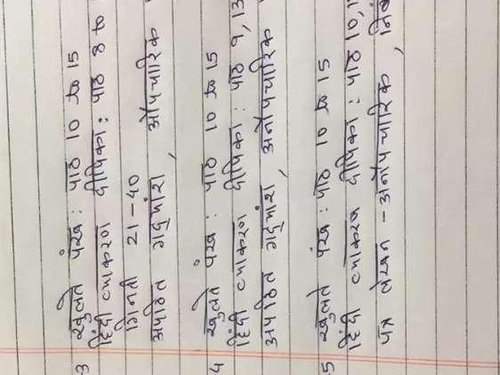 3 खुलते पंख : पाठ 10 से 15
हिंदी व्याकरण दीपिका : पाठ 8 to
गिनती 21-40
अपठित गद्यांश, औपचारिक
4 खुलते पंख : पाठ 10 से 15
हिंदी व्याकरण दीपिका : पाठ 9, 13
अपठित गद्यांश, अनौपचारिक
5 खुलते पंख : पाठ 10 से 15
हिंदी व्याकरण दीपिका : पाठ 10,
पत्र लेखन - अनौपचारिक,